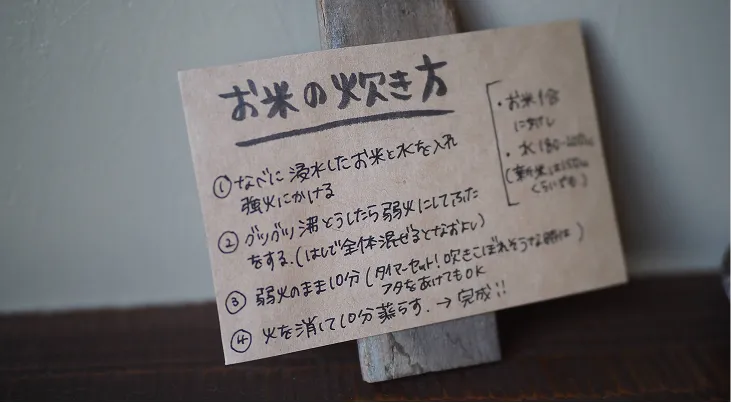 お米の炊き方
① なべに浸水したお米と水を入れ
強火にかける
② グツグツ沸とうしたら弱火にしてふた
をする。(はしで全体混ぜるとなおよし)
③ 弱火のまま10分(タイマーセット!吹きこぼれそうな時は
フタをあけてもOK)
④ 火を消して10分蒸らす。→完成!!
・お米1合
に対し
・水180-200cc
(新米は150cc
くらいでも)